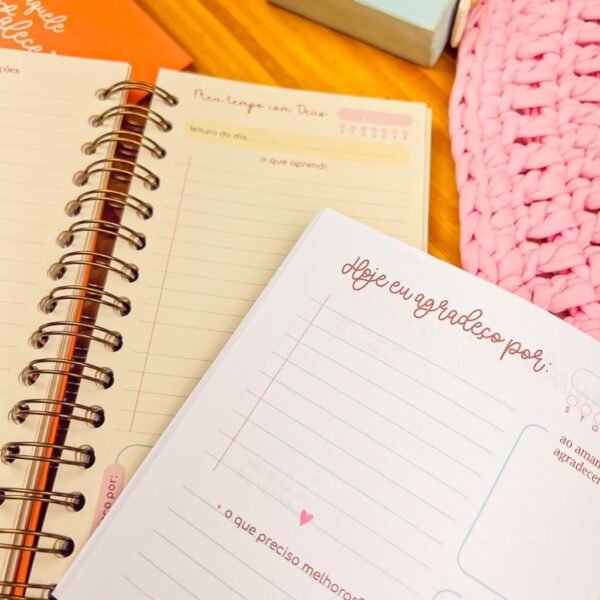 aquele
Meu tempo com Deus
leitura do dia:
o que aprendi:
Hoje eu agradeço por:
S T Q
ao aman
agradecer
o que preciso melhorar?
ço por:
ções